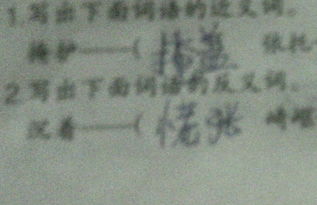 1.写出下面词语的近义词。
掩护——( 掩盖 张托
2.写出下面词语的反义词。
沉着——( 慌张 崎岖